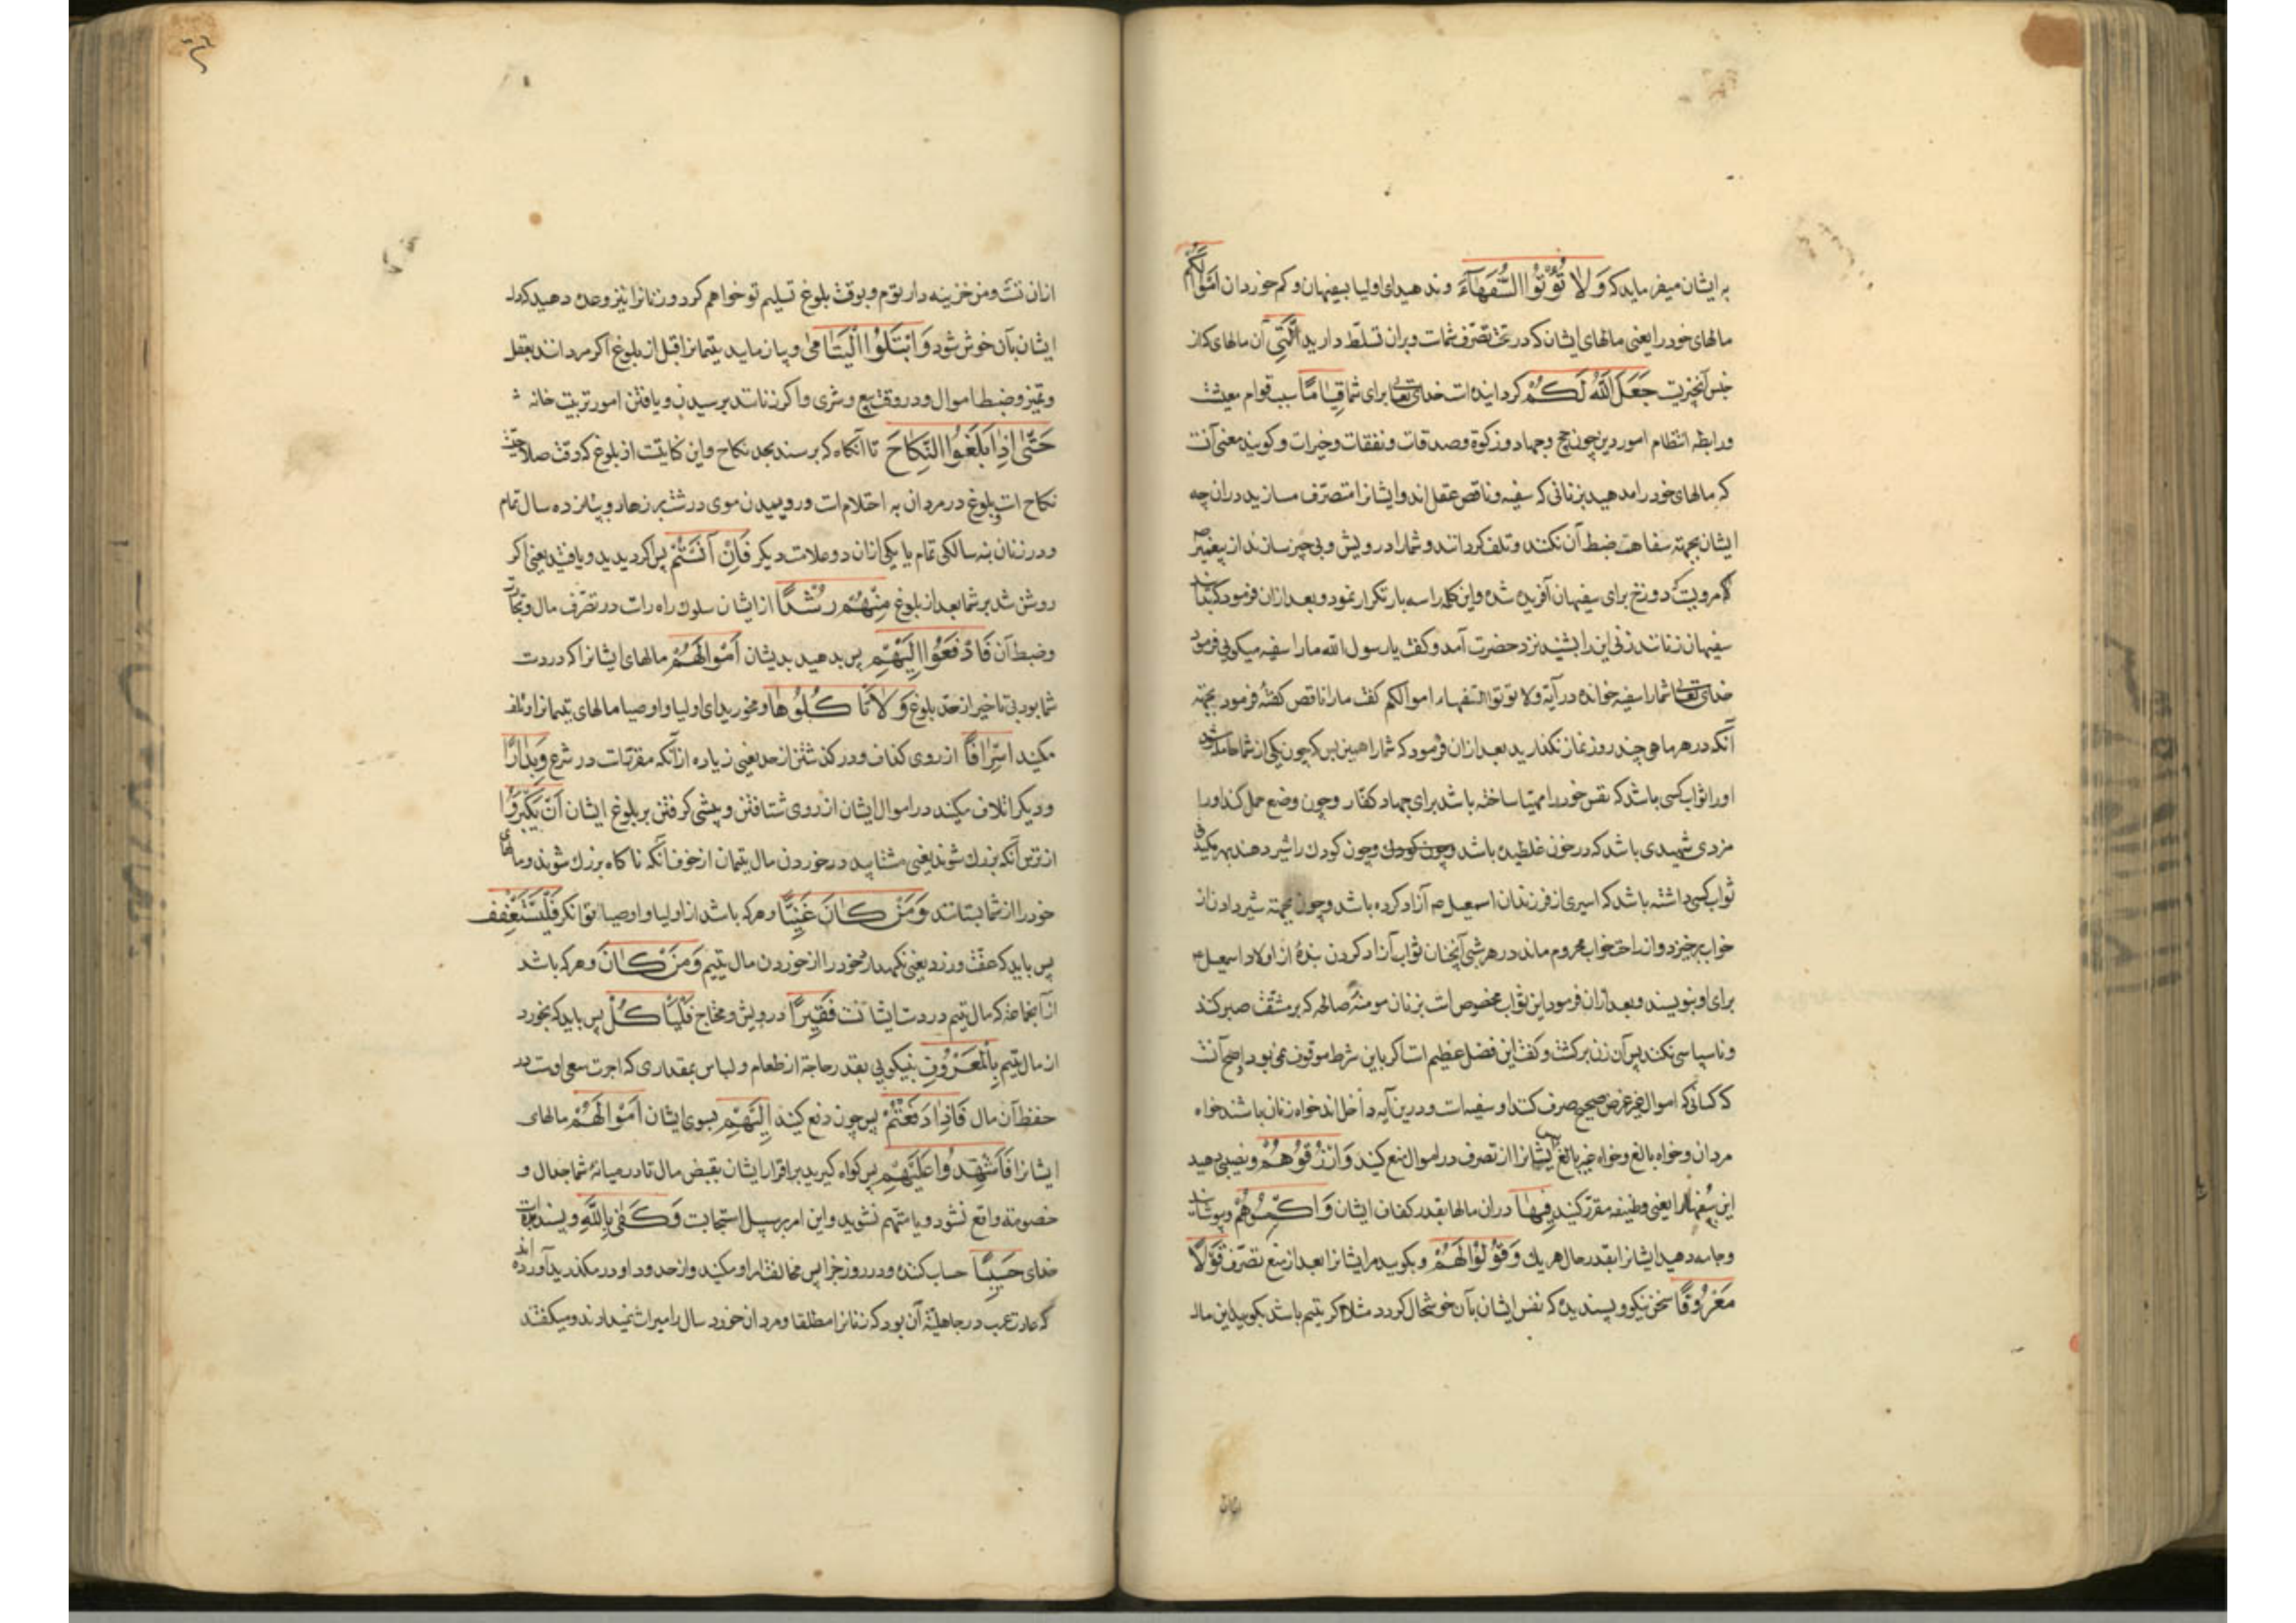 به ایشان میفرماید که وَلا تُؤْتُوا السُّفَهَآءَ و ندهید ای اولیا بسفیهان و کم خوردان اَمْوالَكُمُ
مالهای خود را یعنی مالهای ایشان که در تحت تصرّف شماست و بران تسلّط دارید الَّتِي آن مالهای که از
جنس آنچیزیست جَعَلَ اللّهُ لَكُمْ کردانیده است خدای تعالی برای شما قِيَامًا سبب قوام معیشت
و رابطه انتظام امور دین چون حج و جهاد و زکوة و صدقات و نفقات و خیرات و کویند معنی آنست
که مالهای خود را مدهید بزنانی که سفیه و ناقص عقل اند و ایشانرا متصرّف مسازید در ان چه
ایشان بجهته سفاهت ضبط آن نکنند و تلف کردانند و شما را درویش و بی چیز سازند از پیغمبر ص
مرویست که دوزخ برای سفیهان آفریده شده و این کلمه را سه بار تکرار نمود و بعد ازان فرمود که
سفیهان زنانند زنی این را بشنید نزد حضرت آمد و کفت یا رسول الله ما را سفیه میکویی فرمود
خدای تعالی شما را سفیه خوانده در آیه ولا توتوا السفهاء اموالکم کفت ما را ناقص کفتهٔ فرمود بجهته
آنکه در هر ماهی چند روز نماز نکذارید بعد ازان فرمود که شما را همین بس که چون یکی از شما حامله شود
او را ثواب کسی باشد که نفس خود را مهیّا ساخته باشد برای جهاد کفّار و چون وضع حمل کند او را
مزد شهیدی باشد که در خون غلطیده باشد و چون کودک و چون کودک را شیر دهند بهر مکیدنی
ثواب کسی داشته باشد که اسیری از فرزندان اسمعیل ع آزاد کرده باشد و چون بجهته شیر دادن از
خواب برخیزد و از راحت خواب محروم ماند در هر شبی آنچنان ثواب آزاد کردن بندهٔ از اولاد اسمعیل ع
برای او بنویسند و بعد ازان فرمود این ثواب مخصوص است بزنان مومنهٔ صالحه که بر مشقّت صبر کند
و ناسپاسی نکند پس آن زن برکشت و کفت این فضل عظیم است اکر باین شرط موقوف نمی بود و اصح آنست
که کسانی که اموال بغیر غرض صحیح صرف کنند او سفیه است و درین آیه داخل اند خواه زنان باشند خواه
مردان و خواه بالغ و خواه غیر بالغ پس ایشانرا از تصرف در اموال منع کنید وَارْزُقُوهُمْ و نصیبی دهید
این سفها را یعنی وظیفه مقرّر کنید فِيهَا دران مالها بقدر کفاف ایشان وَاكْسُوهُمْ و بپوشانید
و جامه دهید ایشانرا بقدر حال هر یک وَقُولُوا لَهُمْ و بکویید مر ایشانرا بعد از منع تصرّف قَوْلًا
مَعْرُوفًا سخن نیکو و پسندیده که نفس ایشان بآن خوشحال کردد مثلا اکر یتیم باشد بکویید این مال
ازان تست و من خزینه دار توم و بوقت بلوغ تسلیم تو خواهم کرد و زنانرا نیز وعده دهید که دل
ایشان بآن خوش شود وَابْتَلُوا الْيَتَامیٰ و بیازماید یتیمانرا قبل از بلوغ اکر مردانند بعقل
و تمیز و ضبط اموال و در وقت بیع و شری و اکر زنانند برسیدن و یافتن امور تربیت خانه
حَتّىٰ اِذَا بَلَغُوا النِّكَاحَ تا آنکاه که برسند بحد نکاح و این کنایتست از بلوغ که وقت صلاحیت
نکاح است و بلوغ در مردان به احتلام است و روییدن موی درشت بر زهار و پانزده سال تمام
و در زنان بنه سالکی تمام یا یکی ازان دو علامات دیکر فَاِنْ آنَسْتُمْ پس اکر دیدید و یافتید یعنی اکر
روشن شد بر شما بعد از بلوغ مِنْهُمْ رُشْدًا از ایشان سلوک راه راست در تصرّف مال و تجارت
و ضبط آن فَادْفَعُوا اِلَيْهِمْ پس بدهید بدیشان اَمْوالَهُمْ مالهای ایشانرا که در دست
شما بود بی تاخیر از حدّ بلوغ وَلَا تَاْكُلُوهَا و مخورید ای اولیا و اوصیا مالهای یتیمانرا و تلف
مکنید اِسْرَافًا از روی کذاف و در کذشتن از حد یعنی زیاده از آنکه مقرّر است در شرع وَبِدَارًا
و دیکر اتلاف مکنید در اموال ایشان از روی شتافتن و پیشی کرفتن بر بلوغ ایشان اَنْ يَكْبَرُوا
از ترس آنکه بزرک شوند یعنی مشتابید در خوردن مال یتیمان از خوف آنکه ناکاه بزرک شوند و مالهای
خود را از شما بستانند وَمَنْ كَانَ غَنِيًّا و هر که باشد از اولیا و اوصیا توانکر فَلْيَسْتَعْفِفْ
پس باید که عفت ورزد یعنی نکهدارد خود را از خوردن مال یتیم وَمَنْ كَانَ و هر که باشد
از آنجماعه که مال یتیم در دست ایشانست فَقِيرًا درویش و محتاج فَلْيَاْكُلْ پس باید که بخورد
از مال یتیم بِالْمَعْرُوفِ بنیکویی بقدر حاجة از طعام و لباس بمقداری که اجرت سعی اوست در
حفظ آن مال فَاِذَا دَفَعْتُمْ پس چون دفع کنید اِلَيْهِمْ بسوی ایشان اَمْوَالَهُمْ مالهای
ایشانرا فَاَشْهِدُوا عَلَيْهِمْ پس کواه کیرید بر اقرار ایشان بقبض مال تا در میانهٔ شما جدال و
خصومة واقع نشود و یا متهم نشوید و این امر بر سبیل استحبابست وَكَفىٰ بِاللّهِ و بسنده است
خدای حَسِيبًا حساب کننده در روز جزا پس مخالفت او مکنید و از حدود او در مکذرید آورده اند
که عادت عرب در جاهلیّة آن بود که زنانرا مطلقا و مردان خورد سال را میراث نمیدادند و میکفتند